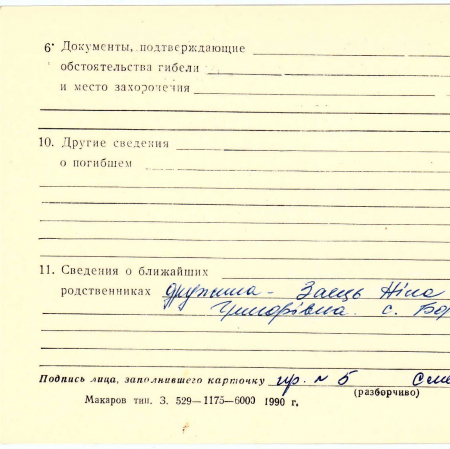 6· Документы, подтверждающие
обстоятельства гибели
и место захоронения
10. Другие сведения
о погибшем
11. Сведения о ближайших
родственниках дружина - Заець Ніна
Григорівна. с. Бор
Подпись лица, заполнившего карточку гр. № 5 Семе
(разборчиво)
Макаров тип. З. 529—1175—6000 1990 г.